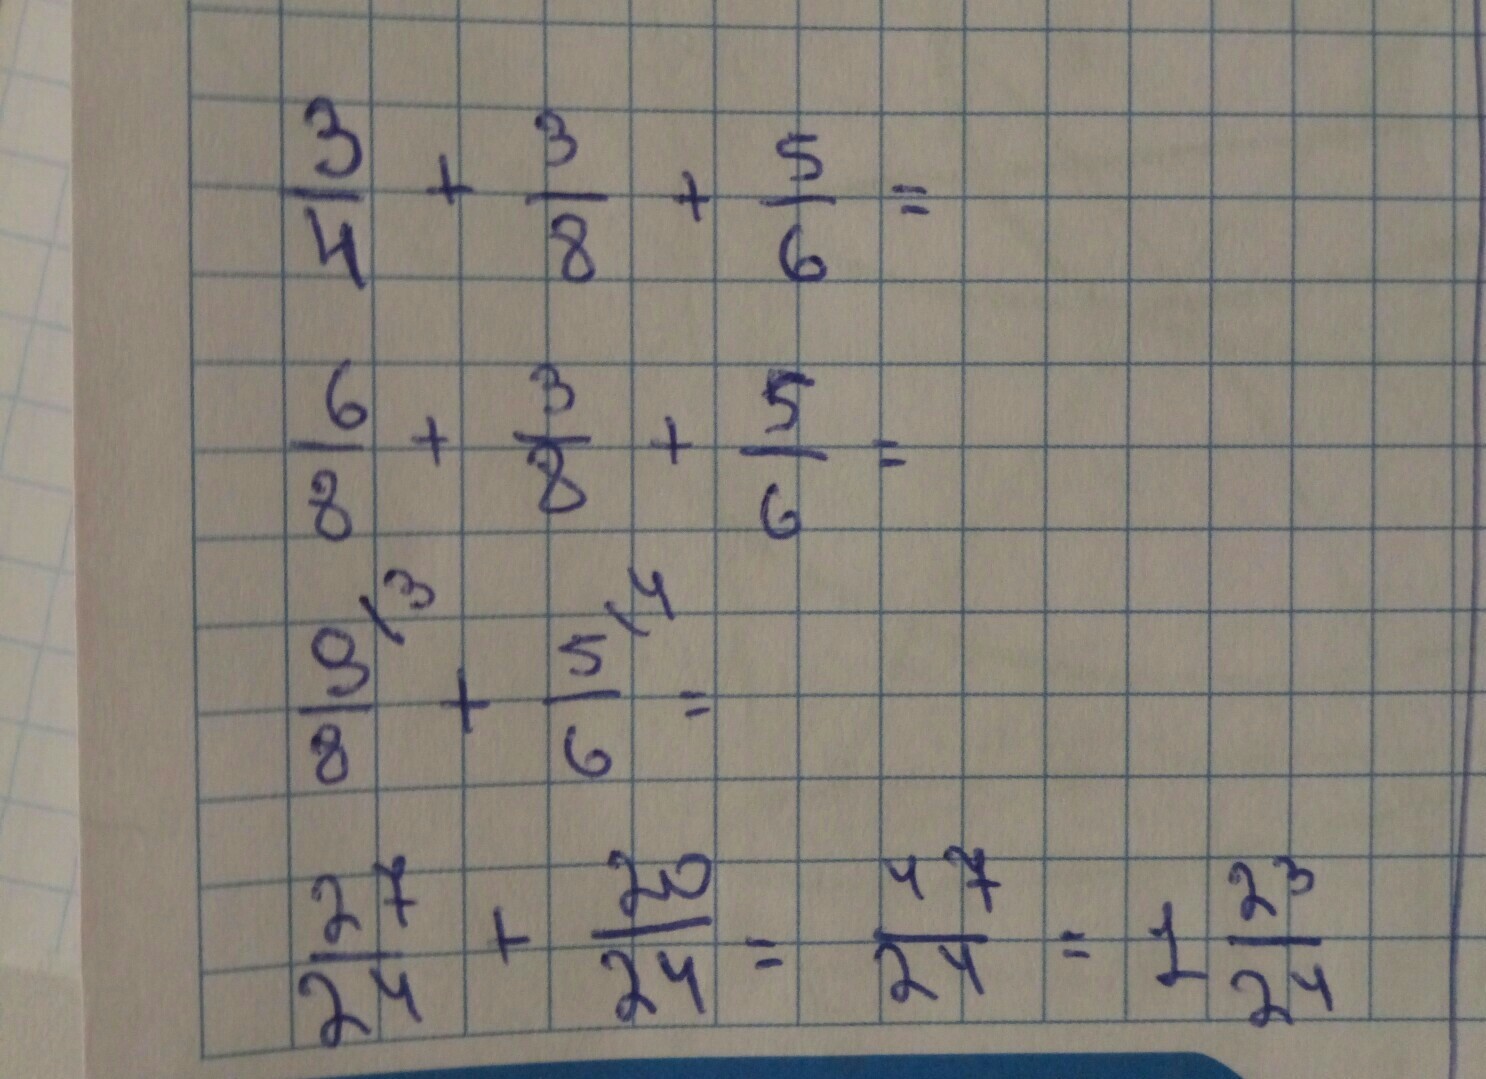 3/4 + 3/8 + 5/6 =
6/8 + 3/8 + 5/6 =
9\3/8 + 5\4/6 =
27/24 + 20/24 = 47/24 = 1 23/24